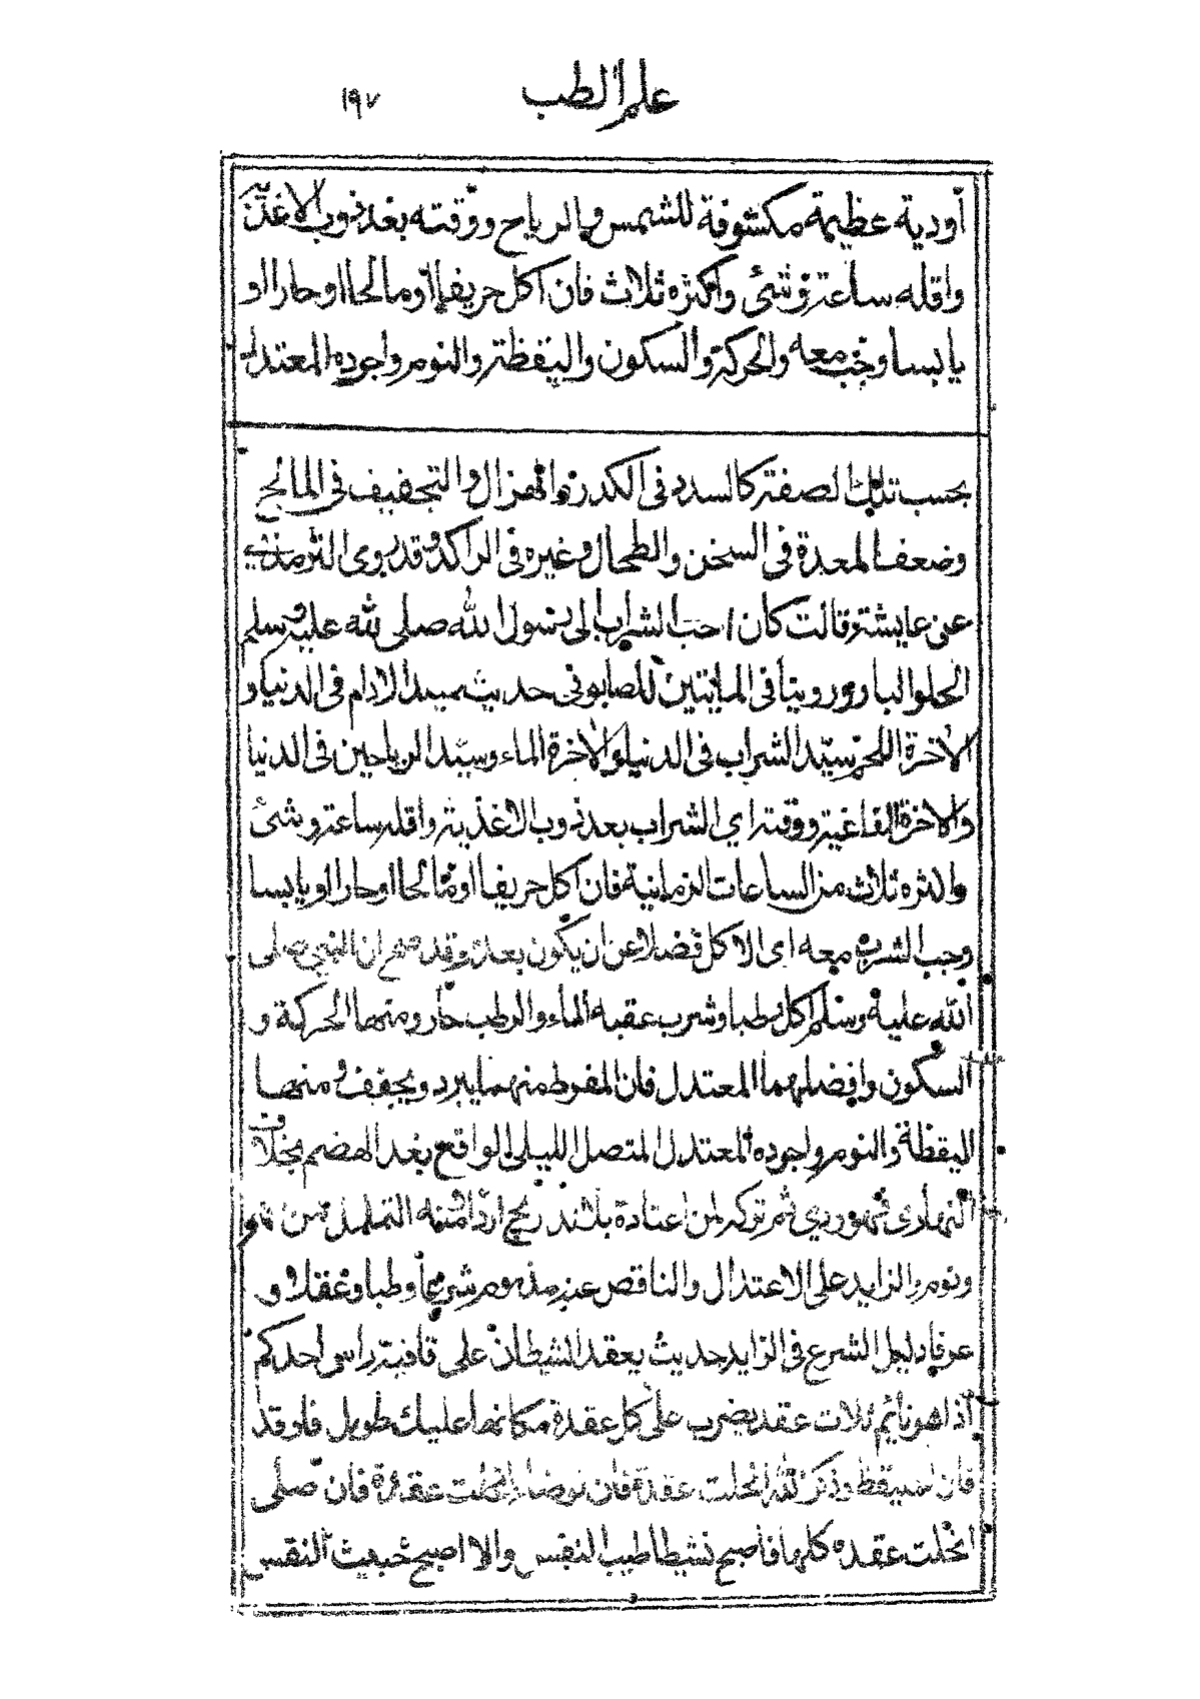 علم الطب ١٩٧
أودية عظيمة مكشوفة للشمس والرياح ووقته بعد ذوب الاغذية
واقله ساعة وشئ واكثره ثلاث فان أكل حريفا أو مالحا او حارا او
يابسا وجب معه والحركة والسكون واليقظة والنوم واجوده المعتدل
بحسب تلك الصفة كالسدد فى الكدر والهزال والتجفيف فى المالح
وضعف المعدة فى السخن والطحال وغيره فى الراكد وقد روى الترمذى
عن عايشة قالت كان احب الشراب الى رسول الله صلى لله عليه وسلم
الحلو البارد وروينا فى الماتين للصابونى حديث سيد الادام فى الدنيا و
الآخرة اللحم سيّد الشراب فى الدنيا والآخرة الماء وسيّد الرياحين فى الدنيا
والاخرة الفاغية ووقته اي الشراب بعد ذوب الاغذية واقله ساعة وشئ
واكثره ثلاث من الساعات الزمانية فان اكل حريفا او مالحا او حارا او يابسا
وجب الشرب معه اى الاكل فضلا عن ان يكون بعده وقد صح ان النبى صلى
الله عليه وسلم اكل رطبا وشرب عقبه الماء والرطب حار ومنها الحركة و
السكون وافضلهما المعتدل فان المفرط منهما يبرد ويجفف ومنها
اليقظة والنوم واجوده المعتدل المتصل الليلى الواقع بعد الهضم بخلاف
النهارى فهو ردي ثم تركه لمن اعتاده بلا تدريج اردا منه التململ بين نوم
ونوم والزايد على الاعتدال والناقص عنه مذموم شرعا وطبا وعقلا و
عرفا دليل الشرع فى الزايد حديث يعقد الشيطان على قافية راس احدكم
اذا هو نائم ثلاث عقد يضرب على كل عقدة مكانها عليك طويل فارقد
فان استيقظ وذكر لله انحلت عقدة فان توضا انحلت عقدة فان صلى
انحلت عقده كلها فاصبح نشيطا طيب النفس والا اصبح خبيث النفس